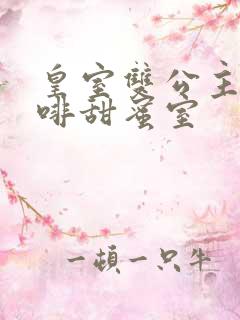 皇室雙公主
啡甜蜜室
一頓一只牛